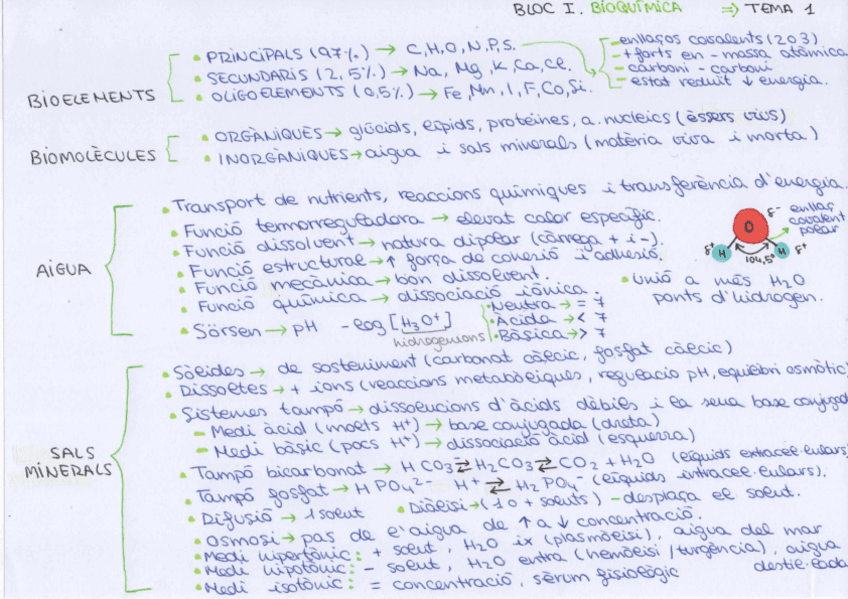 BLOC I. BIOQUÍMICA => TEMA 1
BIOELEMENTS
• PRINCIPALS (97%) → C, H, O, N, P, S.
• SECUNDARIS (2,5%) → Na, Mg, K, Ca, Cl.
• OLIGOELEMENTS (0,5%) → Fe, Mn, I, F, Co, Si.
- enllaços covalents (2 o 3)
- + forts en - massa atòmica
- carboni - carboni
- estat reduït ↓ energia.
BIOMOLÈCULES
• ORGÀNIQUES → glúcids, lípids, proteïnes, a. nucleics (éssers vius)
• INORGÀNIQUES → aigua i sals minerals (matèria viva i morta)
AIGUA
• Transport de nutrients, reaccions químiques i transferència d'energia.
• Funció termorreguladora → elevat calor específic.
• Funció dissolvent → natura dipolar (càrrega + i -).
• Funció estructural → ↑ força de cohesió i adhesió.
• Funció mecànica → bon dissolvent.
• Funció química → dissociació iònica.
• Sörsen → pH -log [H3O+]
hidrogenions
• Neutra → = 7
• Àcida → < 7
• Bàsica → > 7
O δ-
enllaç covalent polar
δ+ H 104,5º H δ+
• Unió a més H2O
ponts d'hidrogen.
SALS MINERALS
• Sòlides → de sosteniment (carbonat càlcic, fosfat càlcic)
• Dissoltes → + ions (reaccions metabòliques, regulació pH, equilibri osmòtic)
• Sistemes tampó → dissolucions d'àcids dèbils i la seua base conjugad
- Medi àcid (molts H+) → base conjugada (dreta)
- Medi bàsic (pocs H+) → dissociació àcid (esquerra)
• Tampó bicarbonat → HCO3- ⇄ H2CO3 ⇄ CO2 + H2O (líquids extracel·lulars)
• Tampó fosfat → HPO4 2- H+ ⇄ H2PO4- (líquids intracel·lulars).
• Difusió → 1 solut • Diàlisi → (1 o + soluts) - desplaça el solut.
• Osmosi → pas de l'aigua de ↑ a ↓ concentració.
• Medi hipertònic: + solut, H2O ix (plasmòlisi), aigua del mar
• Medi hipotònic: - solut, H2O entra (hemòlisi / turgència), aigua destil·lada
• Medi isotònic: = concentració, sèrum fisiològic